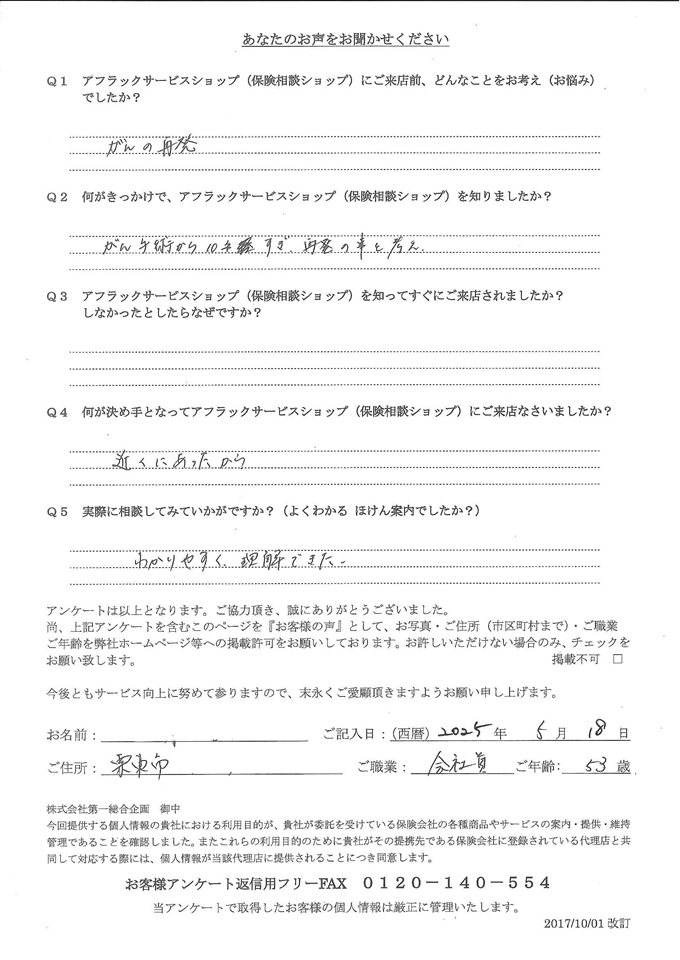 あなたのお声をお聞かせください
Q1 アフラックサービスショップ（保険相談ショップ）にご来店前、どんなことをお考え（お悩み）
でしたか？
がんの再発
Q2 何がきっかけで、アフラックサービスショップ（保険相談ショップ）を知りましたか？
がん手術から10年すぎ、再発の事を考え.
Q3 アフラックサービスショップ（保険相談ショップ）を知ってすぐにご来店されましたか？
しなかったとしたらなぜですか？
Q4 何が決め手となってアフラックサービスショップ（保険相談ショップ）にご来店なさいましたか？
近くにあったから
Q5 実際に相談してみていかがですか？（よくわかる ほけん案内でしたか？）
わかりやすく、理解できた。
アンケートは以上となります。ご協力頂き、誠にありがとうございました。
尚、上記アンケートを含むこのページを『お客様の声』として、お写真・ご住所（市区町村まで）・ご職業
ご年齢を弊社ホームページ等への掲載許可をお願いしております。お許しいただけない場合のみ、チェックを
お願い致します。 掲載不可 □
今後ともサービス向上に努めて参りますので、末永くご愛顧頂きますようお願い申し上げます。
お名前： ご記入日：（西暦）2025年 5月 18日
ご住所：栗東市 ご職業：会社員 ご年齢：53歳
株式会社第一総合企画 御中
今回提供する個人情報の貴社における利用目的が、貴社が委託を受けている保険会社の各種商品やサービスの案内・提供・維持
管理であることを確認しました。またこれらの利用目的のために貴社がその提携先である保険会社に登録されている代理店と共
同して対応する際には、個人情報が当該代理店に提供されることにつき同意します。
お客様アンケート返信用フリーFAX ０１２０－１４０－５５４
当アンケートで取得したお客様の個人情報は厳正に管理いたします。
2017/10/01 改訂